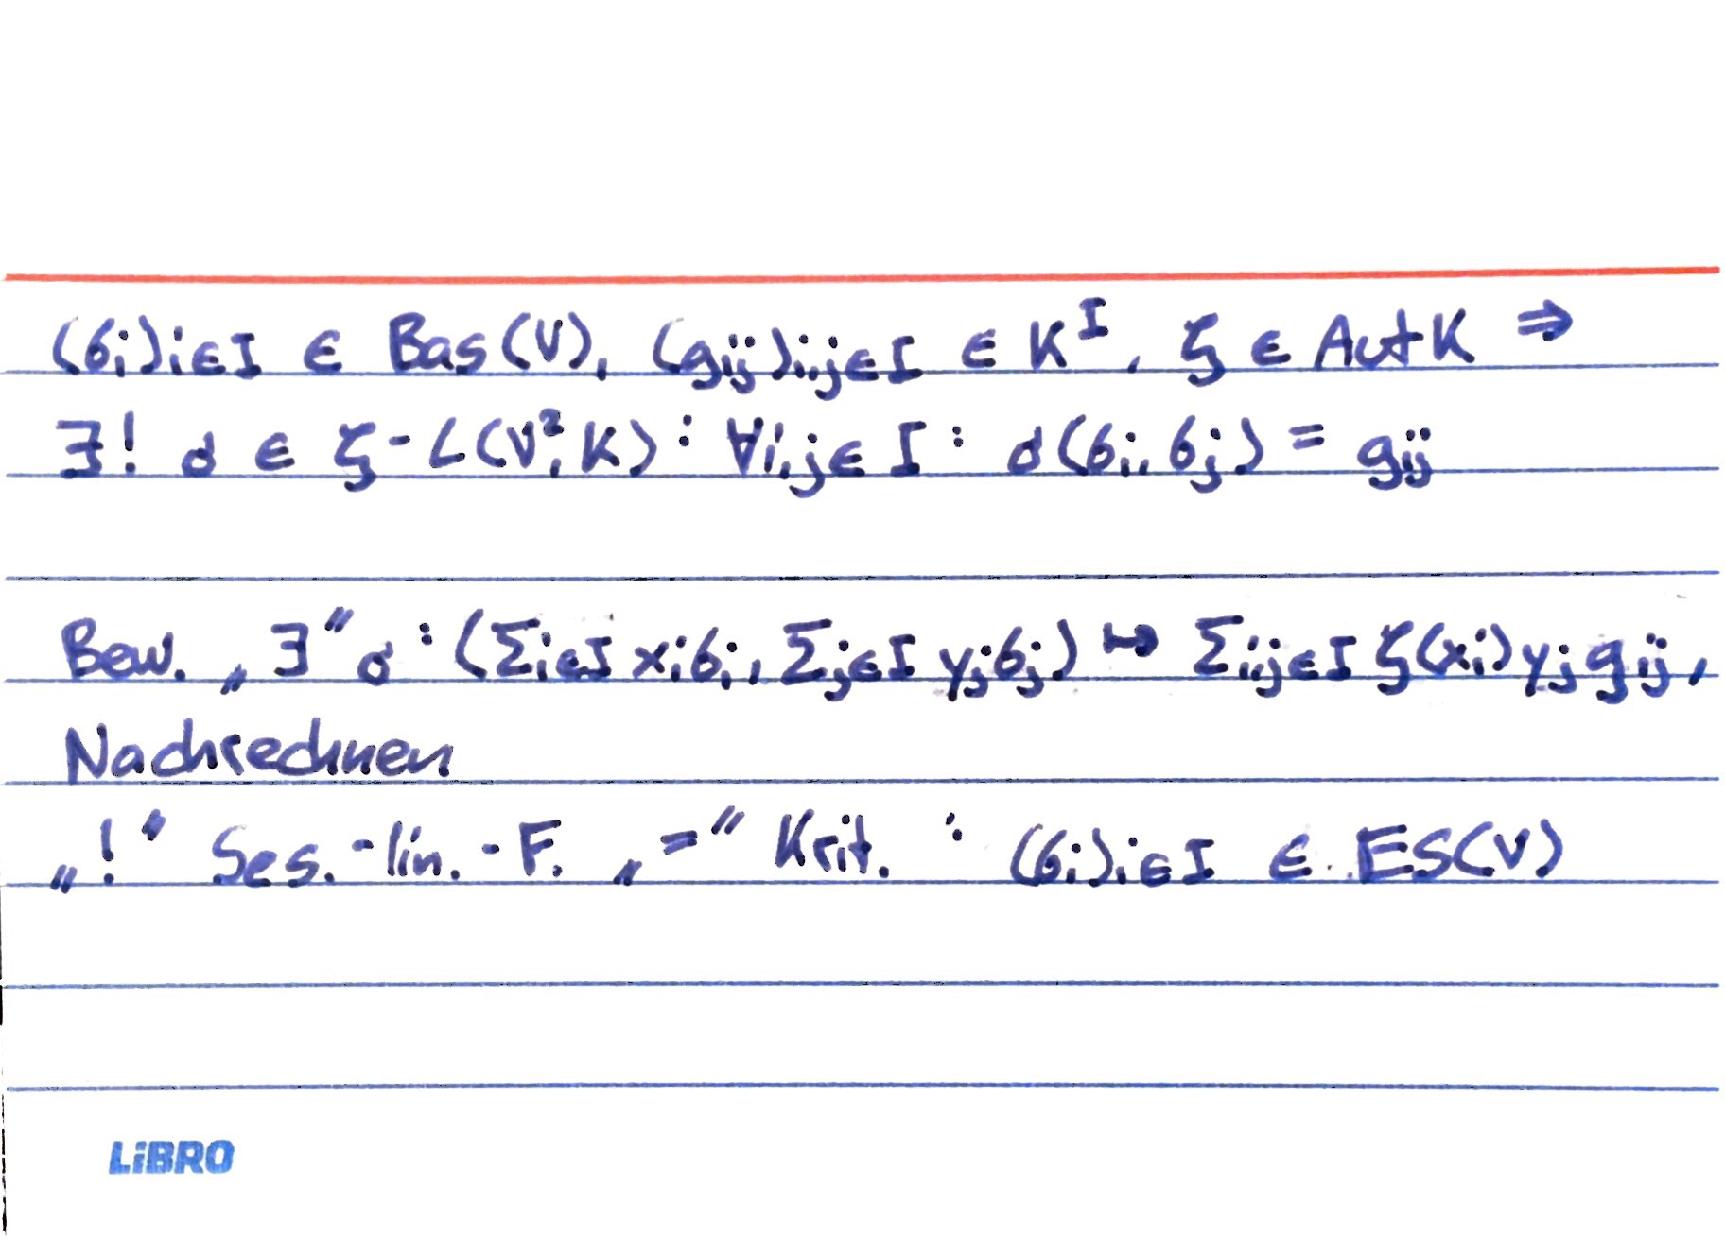 (b_i)_{i∈I} ∈ Bas(V), (g_{ij})_{i,j∈I} ∈ K^I, ζ ∈ Aut K ⇒
∃! σ ∈ ζ-L(V², K): ∀i,j∈I: σ(b_i, b_j) = g_{ij}
Bew. „∃“ σ: (Σ_{i∈I} x_i b_i, Σ_{j∈I} y_j b_j) ↦ Σ_{i,j∈I} ζ(x_i) y_j g_{ij},
Nachrechnen
„!“ Ses.-lin.-F. „=“ Krit. : (b_i)_{i∈I} ∈ ES(V)
LiBRO